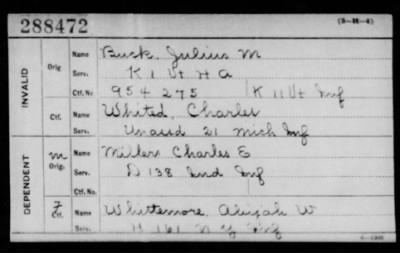 288472 (3-M-4)
INVALID
Orig Name Buck, Julius M
Serv. K 1 Vt H A
Ctf. No. 954275 K 11 Vt Inf
Ctf. Name Whited, Charles
Serv. Unasd 21 Mich Inf
DEPENDENT
M Orig. Name Miller Charles E
Serv. D 138 Ind Inf
Ctf. No.
7 Ctf. Name Whittemore, Abijah W
Serv. H 161 N Y Inf